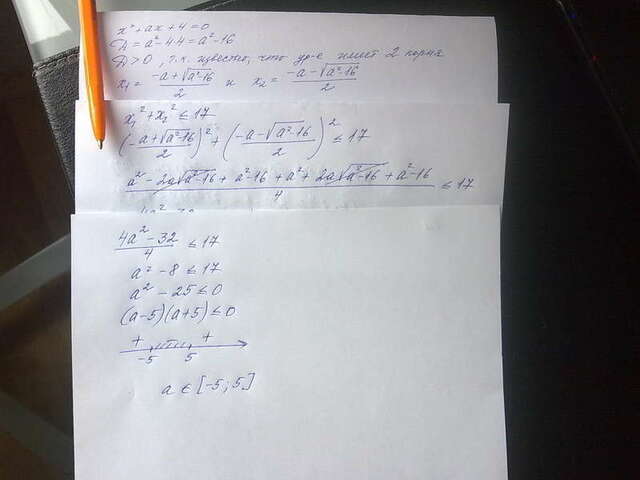 x² + ax + 4 = 0
D = a² - 4·4 = a² - 16
D > 0, т.к. известно, что ур-е имеет 2 корня
x₁ = (-a + √(a² - 16))/2 и x₂ = (-a - √(a² - 16))/2
x₁² + x₂² ≤ 17
((-a + √(a² - 16))/2)² + ((-a - √(a² - 16))/2)² ≤ 17
(a² - 2a√(a² - 16) + a² - 16 + a² + 2a√(a² - 16) + a² - 16)/4 ≤ 17
(4a² - 32)/4 ≤ 17
a² - 8 ≤ 17
a² - 25 ≤ 0
(a - 5)(a + 5) ≤ 0
+ +
-5 5
a ∈ [-5; 5]